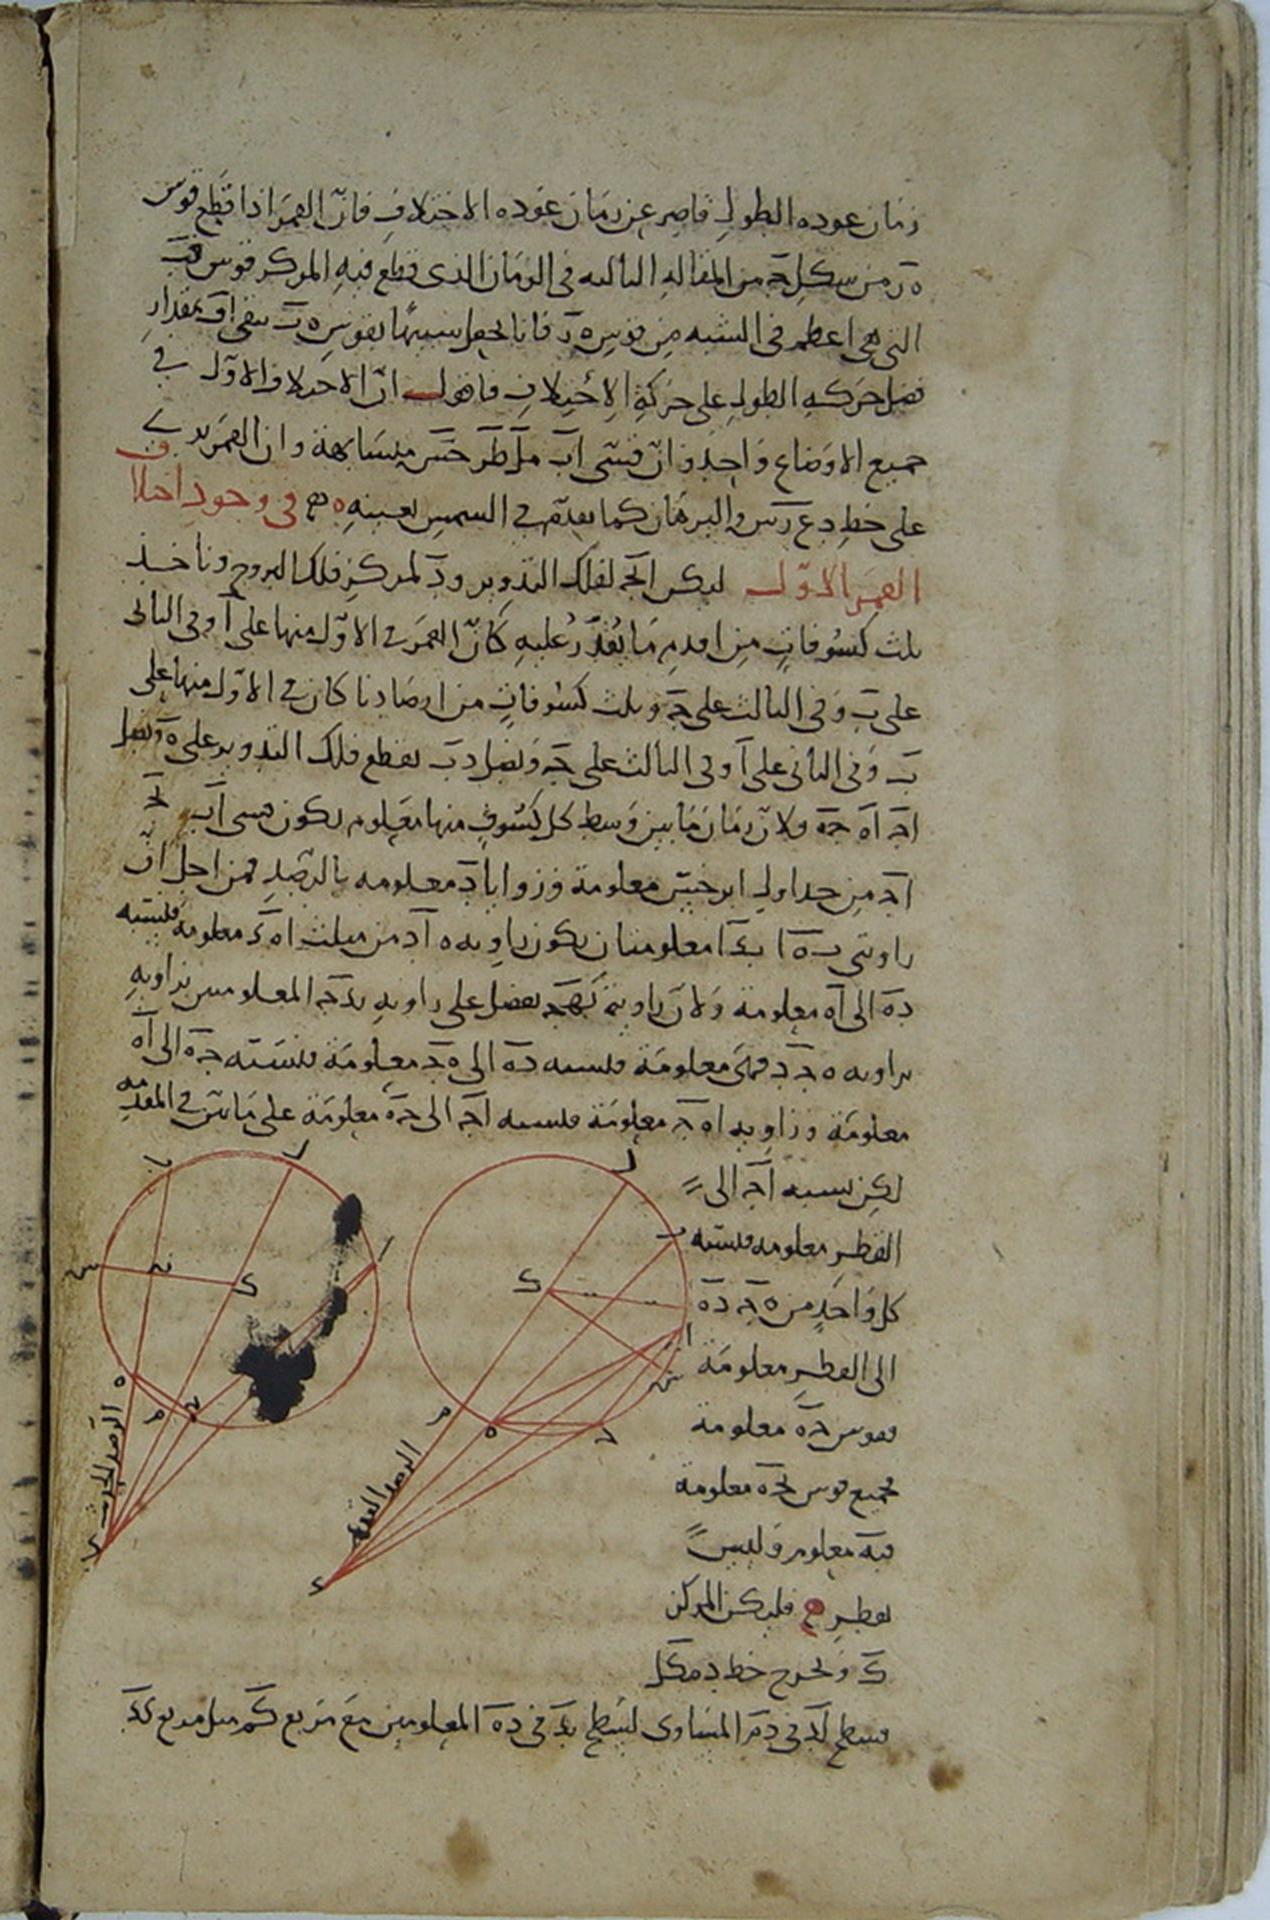 زمان عودة الطول قاصر عن زمان عودة الاختلاف فان القمر اذا قطع قوس
ه ر من شكل ح من المقالة الثالثة فى الزمان الذى قطع فيه المركز قوس
التى هى اعظم فى الشبه من قوس ه ر فانا نجعل شبيهها بقوس ه ت يبقى بمقدار
فضل حركة الطول على حركة الاختلاف فاقول ان الاختلاف الاول فى
جميع الاوضاع واحد وان قسى اب متشابهة وان القمر يرى
على خط والبرهان كما تقدم فى الشمس بعينه ه فى وجود اختلاف
القمر الاول ليكن ابج لفلك التدوير و د لمركز فلك البروج وناخذ
ثلث كسوفات من اقدم ما يقدر عليه كان القمر فى الاول منها على آ وفى الثانى
على ب وفى الثالث على ج وثلث كسوفات من ارصادنا كان فى الاول منها على
ب وفى الثانى على آ وفى الثالث على ج ونصل دب يقطع فلك التدوير على ه ونصل
اج اه جه ولان زمان ما بين وسط كل كسوف منها معلوم يكون قسى اب بج
اج من جداول ابرخس معلومة وزوايا د معلومه بالرصد فمن اجل ان
زاويتى ب ه ا بدا معلومتان يكون زاويه ه آد من مثلث اه د معلومه فنسبه
ده الى آه معلومة ولان زاوية بهج تفضل على زاويه بدج المعلومتين بزاويه
بزاويه ه ج د فهى معلومة فنسبه ده الى ه ج معلومة فنسبته جه الى آه
معلومة وزاويه اه ج معلومة فنسبه اج الى جه معلومة على ما تبين فى المقدمه
لكن نسبه اج الى
القطر معلومه فنسبه
كل واحد من ه ج ده
الى القطر معلومة
فقوس جه معلومة
فجميع قوس بجه معلومة
فبه معلوم وليس
بقطر فليكن المركز
ك ونخرج خط دمكل
فسطح لد فى دم المساوى لسطح بد فى ده المعلومين مع مربع كم مثل مربع كد
الرصد الحديث
الرصد القديم